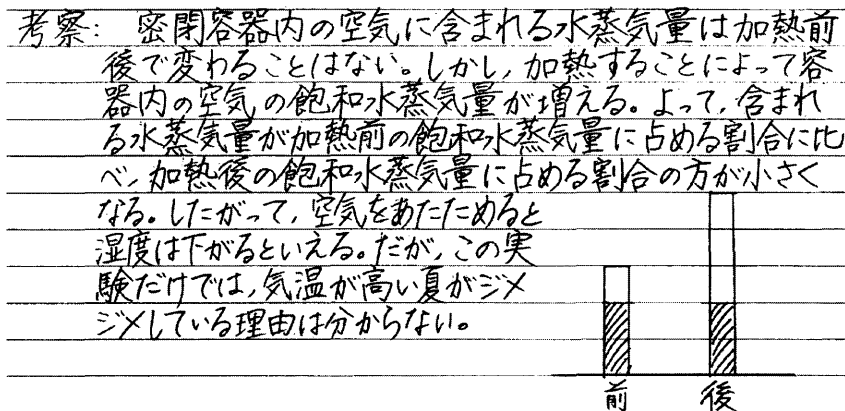 考察: 密閉容器内の空気に含まれる水蒸気量は加熱前
後で変わることはない。しかし、加熱することによって容
器内の空気の飽和水蒸気量が増える。よって、含まれ
る水蒸気量が加熱前の飽和水蒸気量に占める割合に比
べ、加熱後の飽和水蒸気量に占める割合の方が小さく
なる。したがって、空気をあたためると
湿度は下がるといえる。だが、この実
験だけでは、気温が高い夏がジメ
ジメしている理由は分からない。
前 後